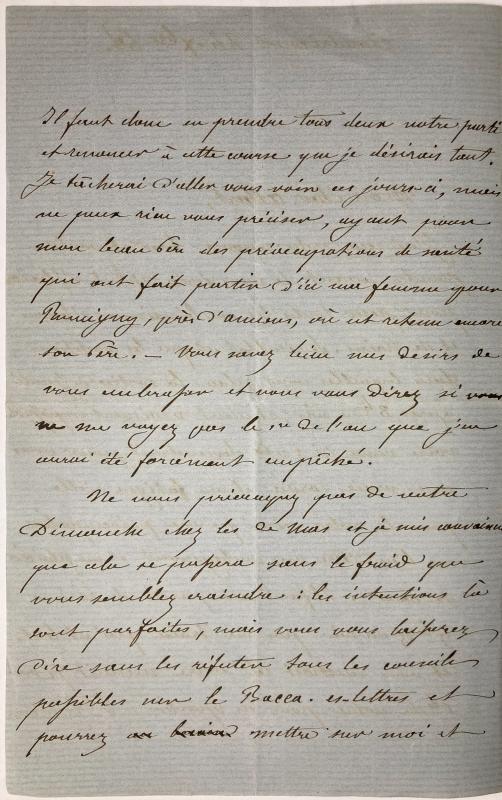 Il faut donc en prendre tous deux notre parti
et renoncer à cette course que je désirais tant.
Je tâcherai d'aller vous voir ces jours ci, mais
ne peux rien vous préciser, ayant pour
mon beau Père des préoccupations de santé
qui ont fait partir d'ici ma femme pour
Rumigny, près d'amiens, où est retenu encore
son Père. — Vous savez bien mes désirs de
vous embrasser et vous vous direz si vous
ne me voyez pas le 1er de l'an que j'en
aurai été forcément empêché.
Ne vous préoccupez pas de votre
Dimanche chez les de Mas et je suis convaincu
que cela se passera sans le froid que
vous semblez craindre : les intentions là
sont parfaites, mais vous vous laisserez
dire sans les réfuter tous les conseils
possibles sur le Bacca. es-lettres et
pourrez mettre sur moi et